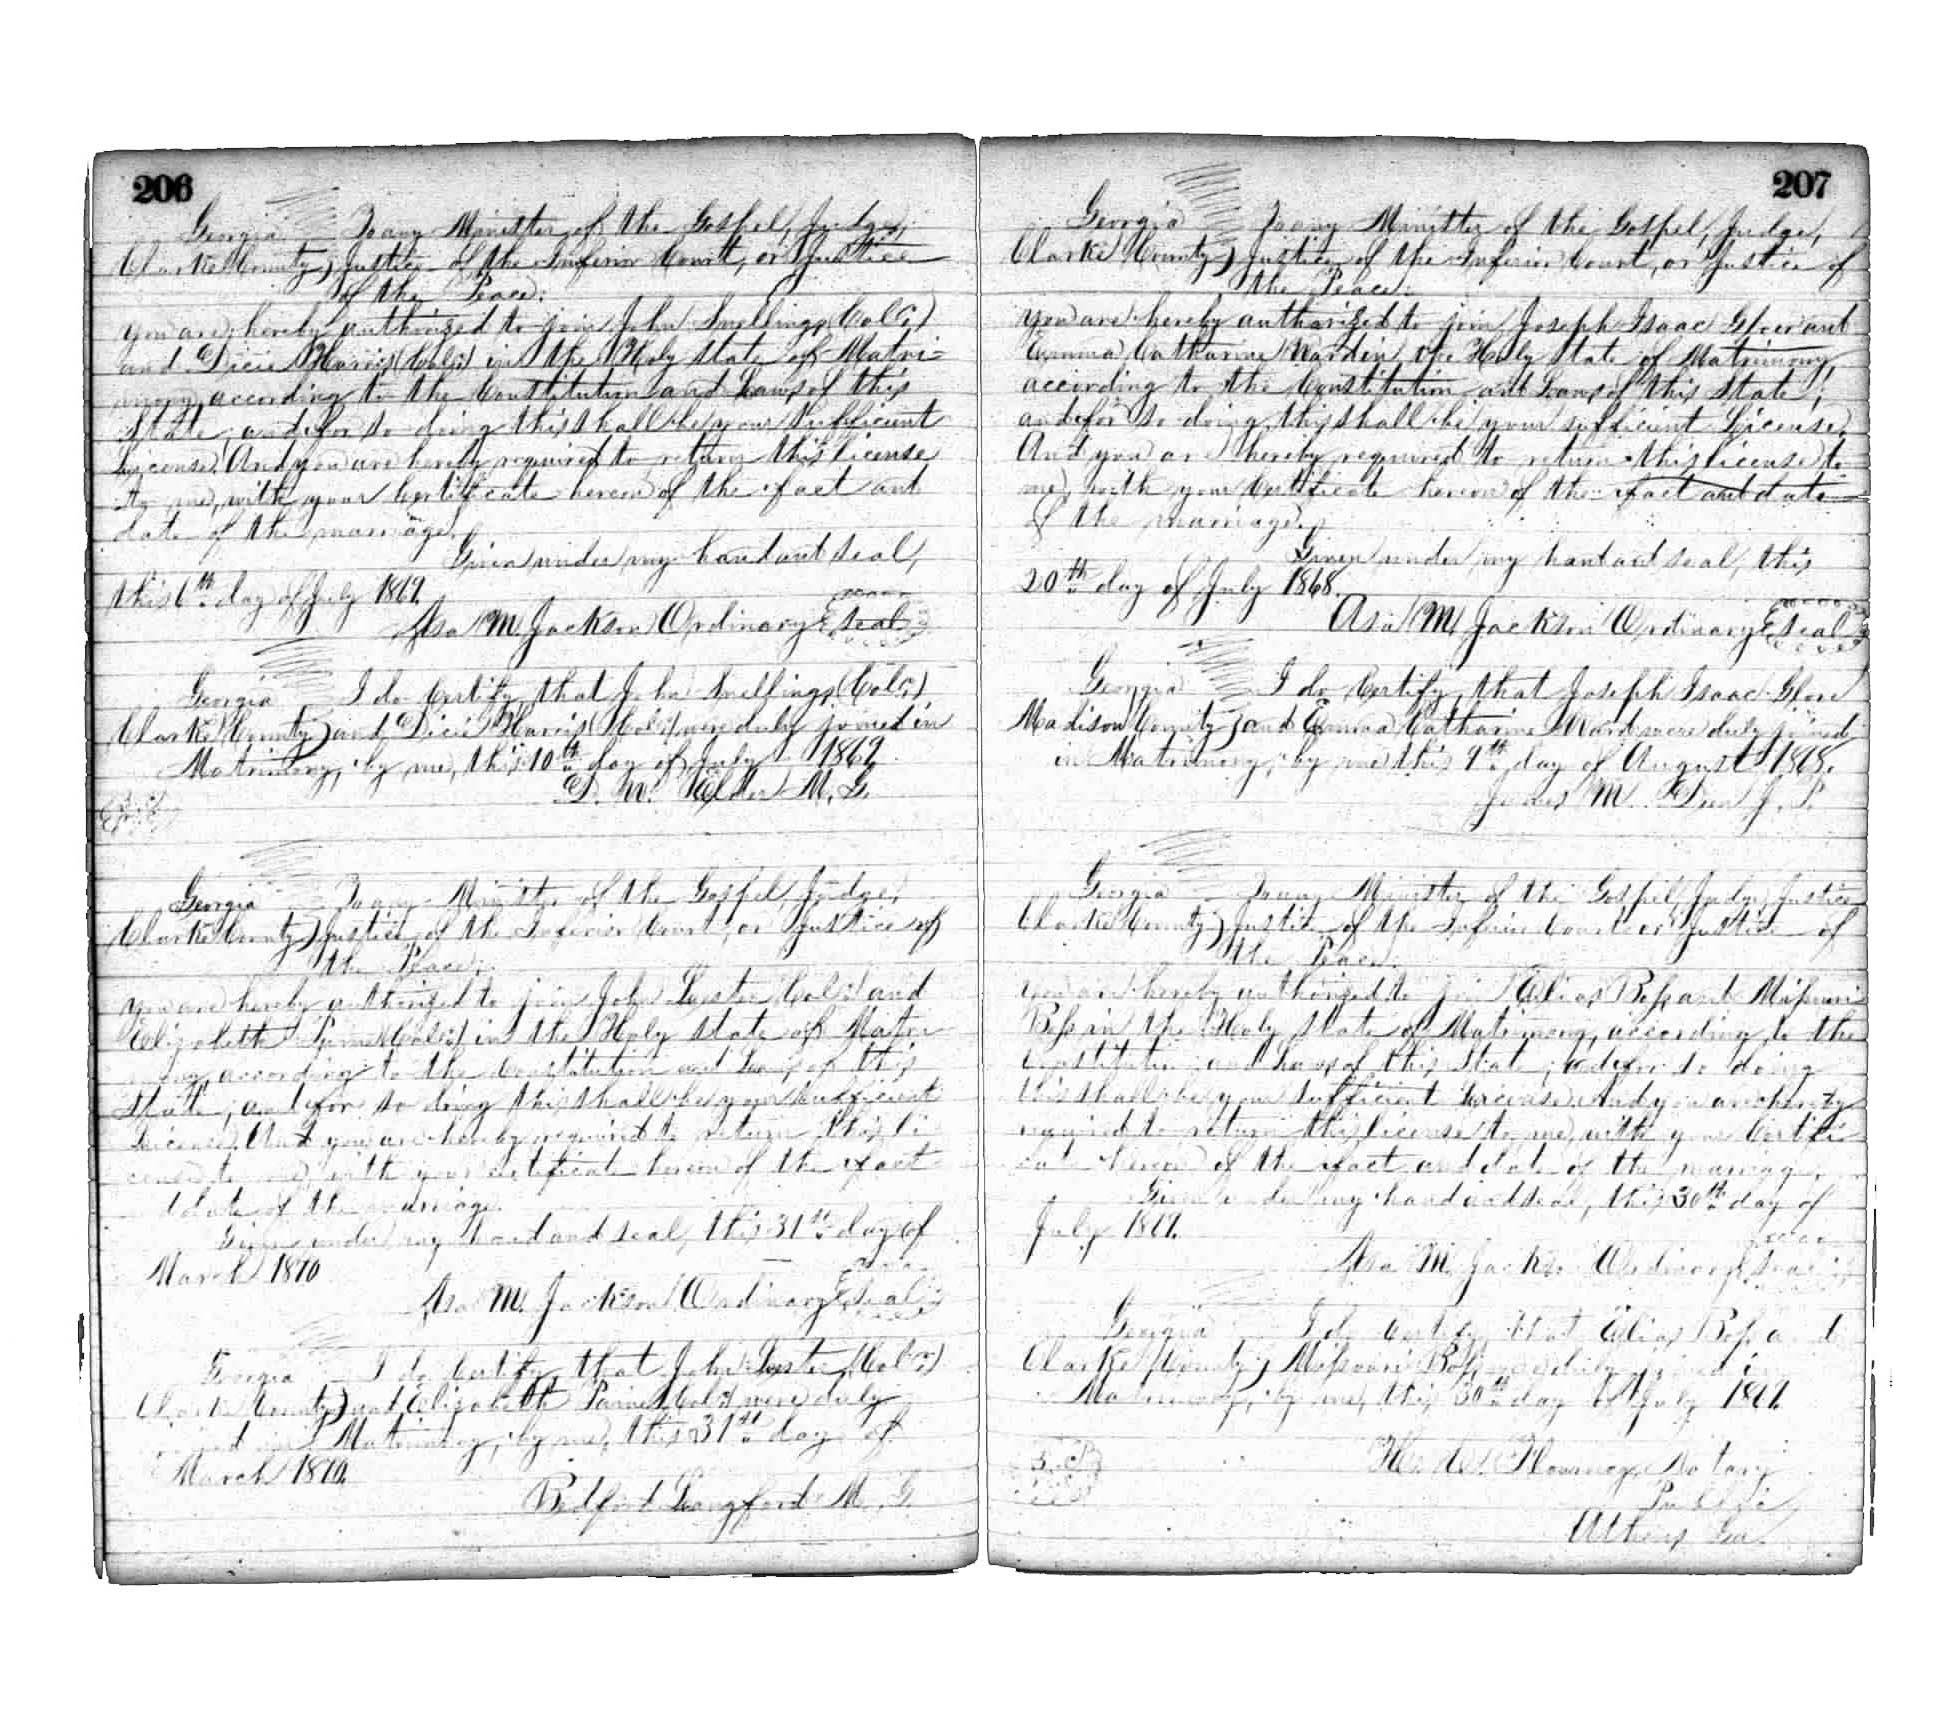 206
Georgia To any Minister of the Gospel, Judge,
Clarke County) Justice of the Inferior Court, or Justice
of the Peace:
you are hereby authorized to join John Snellings (Col.)
and Dicie Harris (Col.) in the Holy State of Matri-
mony, according to the Constitution and Laws of this
State; and for so doing this shall be your sufficient
License. And you are hereby required to return this license
to me, with your Certificate hereon of the fact and
date of the marriage.
Given under my hand and seal,
this 6th day of July 1869.
Asa M. Jackson Ordinary Seal
Georgia I do Certify, that John Snellings (Col.)
Clarke County) and Dicie Harris (Col.) were duly joined in
Matrimony, by me, this 10th day of July 1869.
Elder M. G.
Georgia To any Minister of the Gospel, Judge,
Clarke County) Justice of the Inferior Court, or Justice of
the Peace:
you are hereby authorized to join John Lester (Col.) and
Elizabeth (Col.) in the Holy State of Matri
mony, according to the Constitution and Laws of this
State; and for so doing this shall be your sufficient
License. And you are hereby required to return this li
cense to me, with your certificate hereon of the fact
date of the marriage.
Given under my hand and seal, this 31st day of
March 1870
Asa M. Jackson Ordinary Seal
Georgia I do Certify, that John Lester (Col.)
Clarke County) and Elizabeth (Col.) were duly
joined in Matrimony, by me, this 31st day of
March 1870.
Bedford Langford M. G.
207
Georgia To any Minister of the Gospel, Judge,
Clarke County) Justice of the Inferior Court, or Justice of
the Peace:
you are hereby authorized to join Joseph Isaac Glore and
Emma Catharine Ward in the Holy State of Matrimony,
according to the Constitution and Laws of this State;
and for so doing, this shall be your sufficient License.
And you are hereby required to return this license to
me, with your Certificate hereon of the fact and date
of the marriage.
Given under my hand and seal, this
20th day of July 1868.
Asa M. Jackson Ordinary Seal
Georgia I do Certify, that Joseph Isaac Glore
Madison County) and Emma Catharine Ward were duly joined
in Matrimony, by me this 9th day of August 1868.
James M. J. P.
Georgia To any Minister of the Gospel, Judge, Justice
Clarke County) Justice of the Inferior Court or Justice of
the Peace.
you are hereby authorized to join Elias Bess and Missouri
Bess in the Holy State of Matrimony, according to the
Constitution and Laws of this State; and for so doing
this shall be your sufficient License. And you are hereby
required to return this license to me, with your Certifi
cate hereon of the fact and date of the marriage.
Given under my hand and seal, this 30th day of
July 1869.
Asa M. Jackson Ordinary Seal
Georgia I do Certify, that Elias Bess and
Clarke County) Missouri Bess were duly joined in
Matrimony, by me, this 30th day of July 1869.
Notary
Public
Athens Ga.